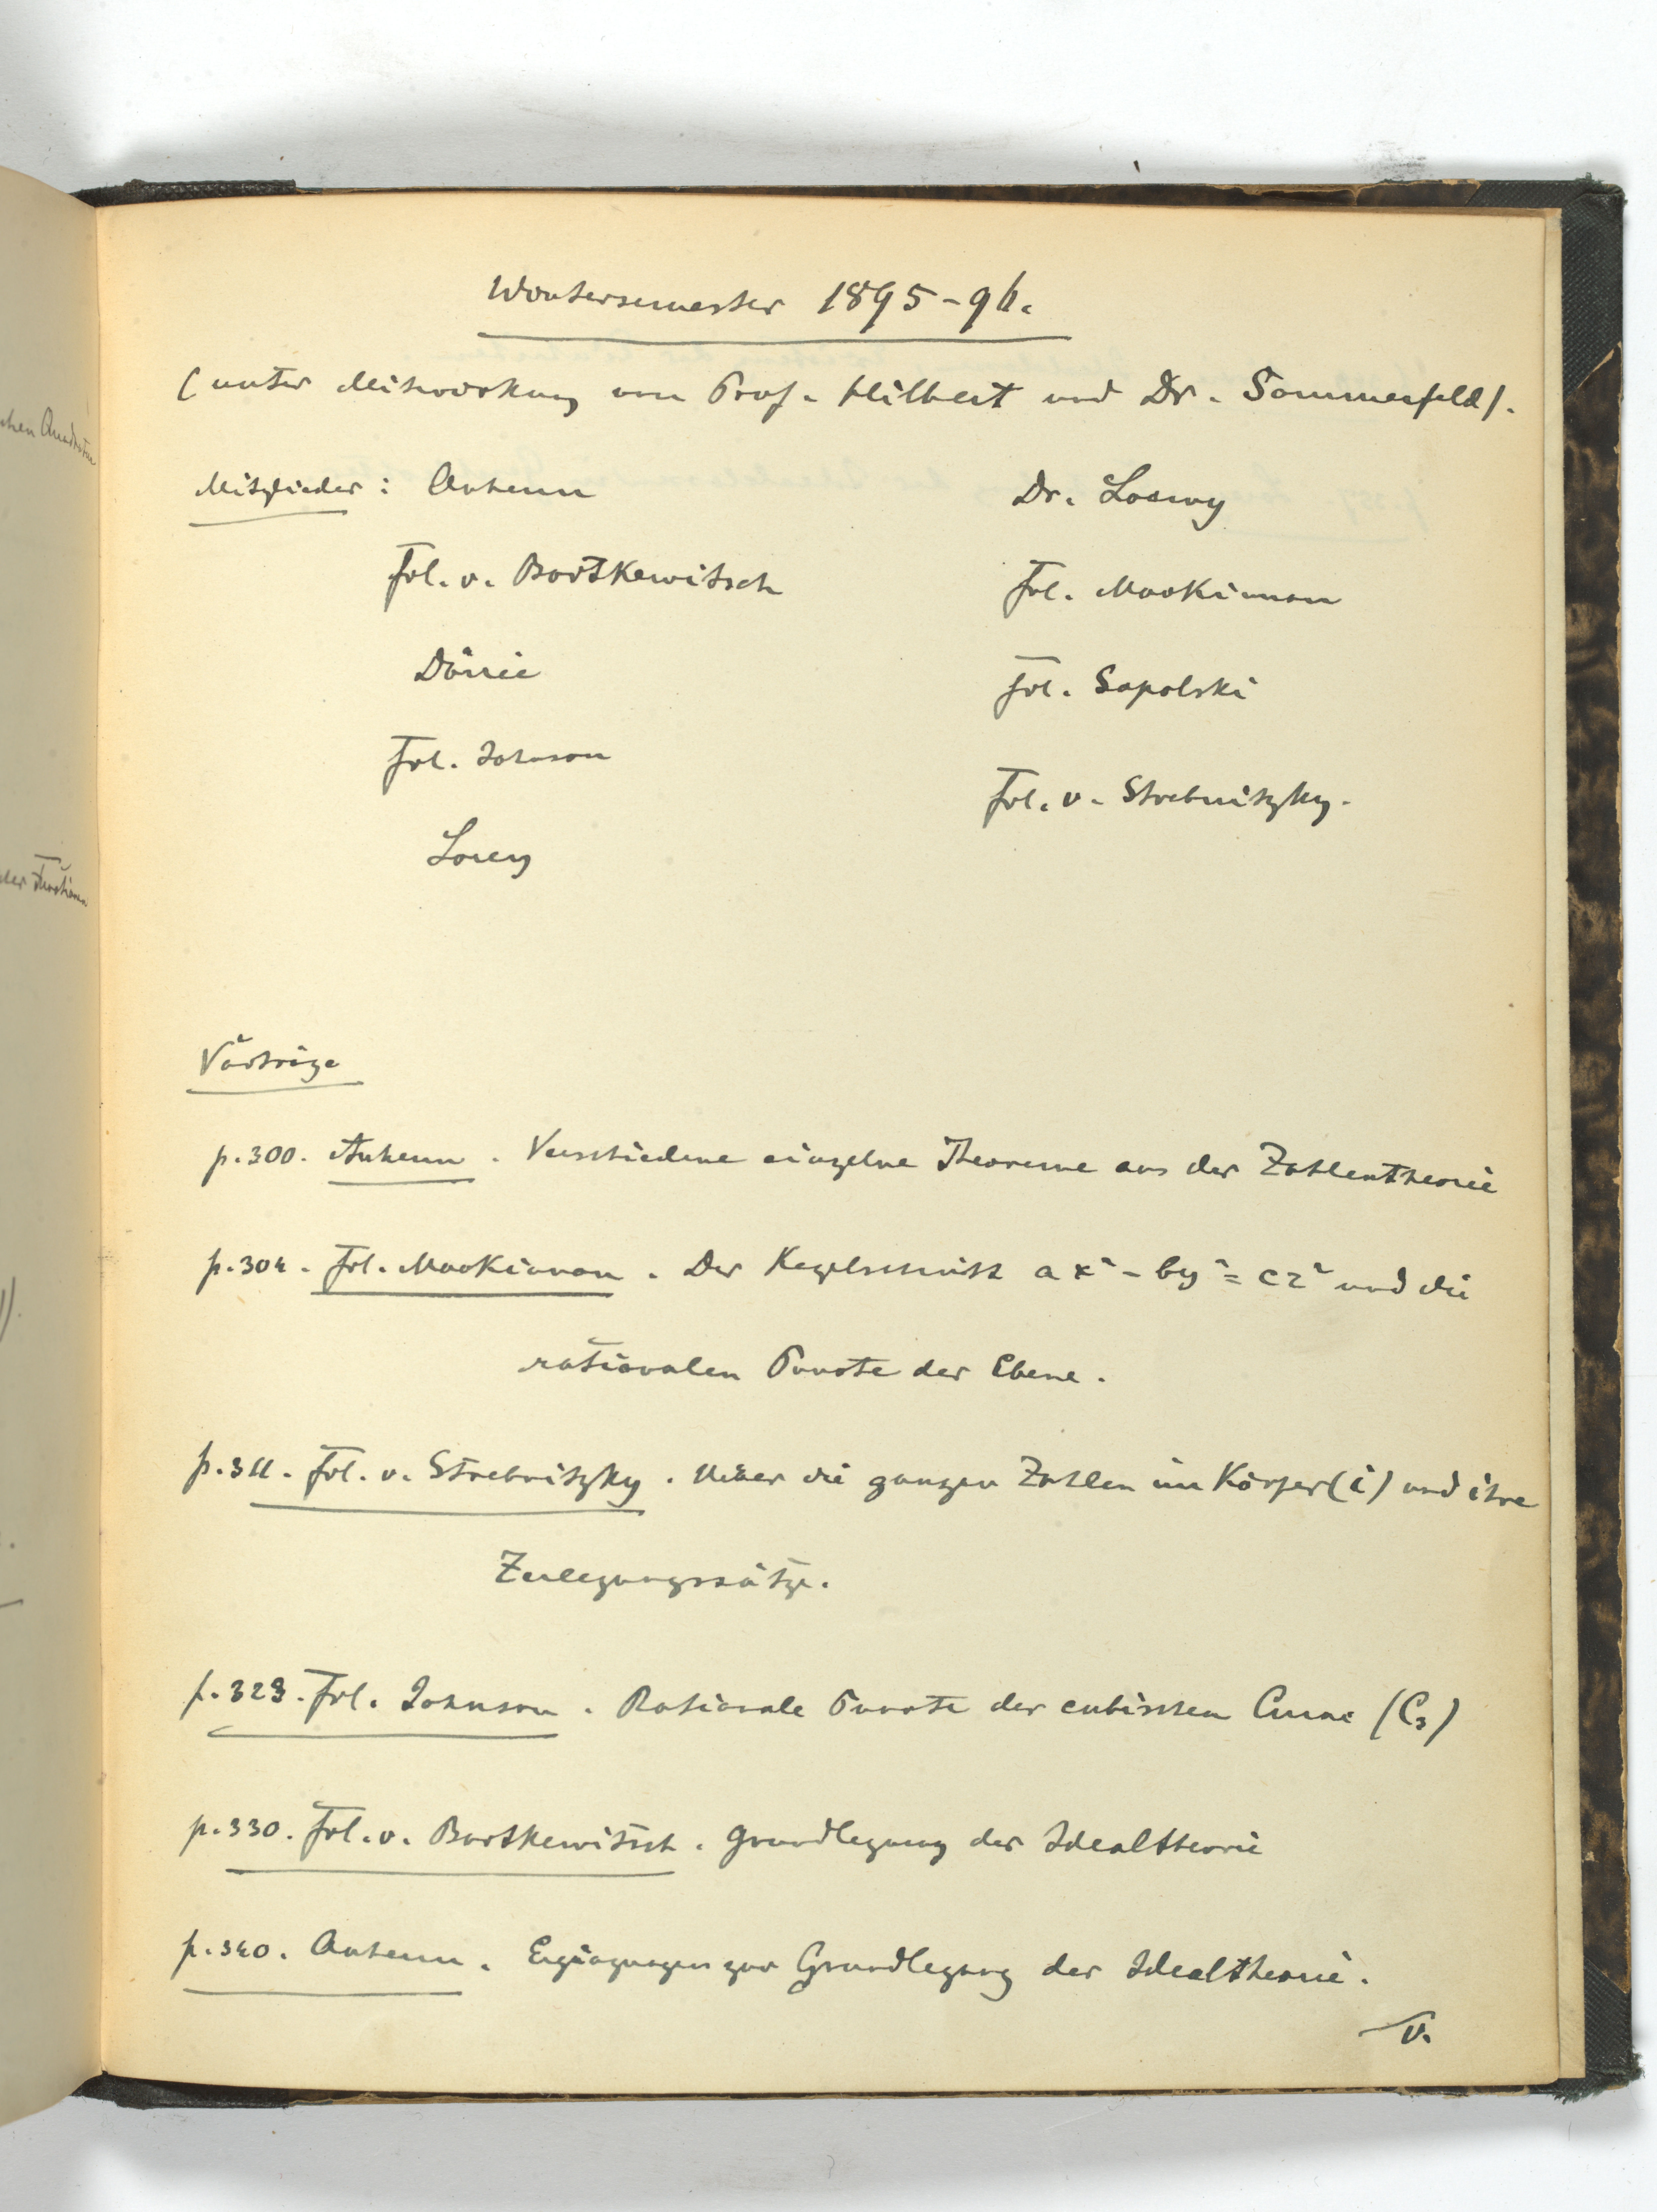 Wintersemester 1895-96.
(unter Mitwirkung von Prof. Hilbert und Dr. Sommerfeld).
Mitglieder: Ankenn Dr. Loewy
Frl. v. Bortkewitsch Frl. MacKinnon
Dörrie Frl. Sapolski
Frl. Johnson Frl. v. Strebnitzky.
Lorey
Vorträge
p. 300. Ankenn. Verschiedene einzelne Theoreme aus der Zahlentheorie
p. 304. Frl. MacKinnon. Der Kegelschnitt ax² - by² = cz² und die
rationalen Puncte der Ebene.
p. 311. Frl. v. Strebnitzky. Ueber die ganzen Zahlen im Körper (i) und ihre
Zerlegungssätze.
p. 323. Frl. Johnson. Rationale Puncte der cubischen Curve (C₃)
p. 330. Frl. v. Bortkewitsch. Grundlegung der Idealtheorie
p. 340. Ankenn. Ergänzungen zur Grundlegung der Idealtheorie.
v.